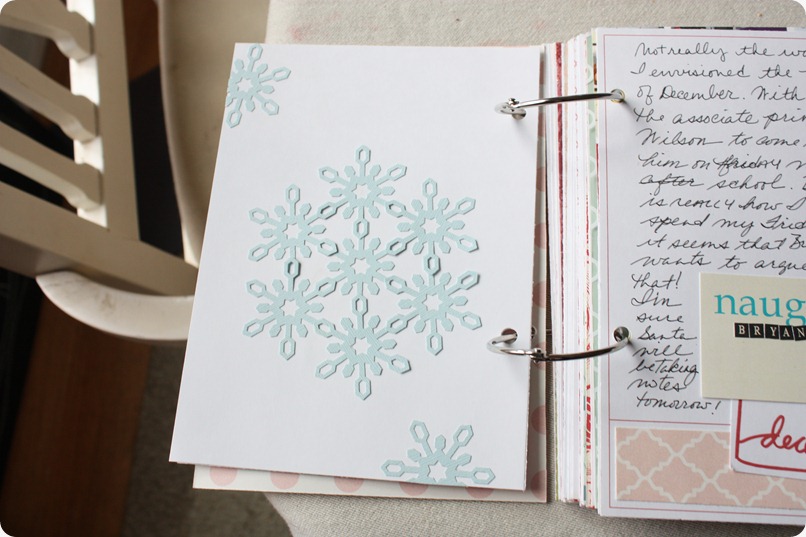 Not really the wo
I envisioned the
of December. With
the associate prin
Wilson to come
him on friday
after school.
is remcy how I
spend my Frid
it seems that Br
wants to argue
that!
I'm
sure
Santa
will
be taking
notes
tomorrow!
naug
BRYAN
dec